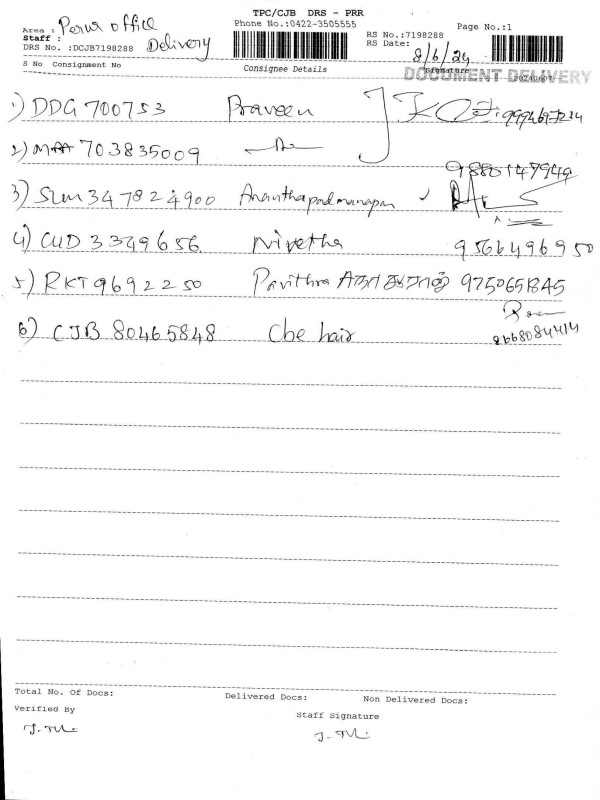 TPC/CJB DRS - PRR
Phone No.:0422-3505555
Page No.:1
Area : Perur office
Staff : Delivery
DRS No. :DCJB7198288
RS No.:7198288
RS Date: 8/6/24
S No Consignment No Consignee Details Signature
DOCUMENT DELIVERY
1) DDG 700753 Praveen
2) 703835009
3) SLM 347824900 Ananthapadmanapan
4) CUD 3349656 Nivetha 9566496950
5) RKT 9692250 Pavithra 9750651845
6) CJB 80465848 Cbe hair 8668084414
Total No. Of Docs: Delivered Docs: Non Delivered Docs:
Verified By
Staff Signature